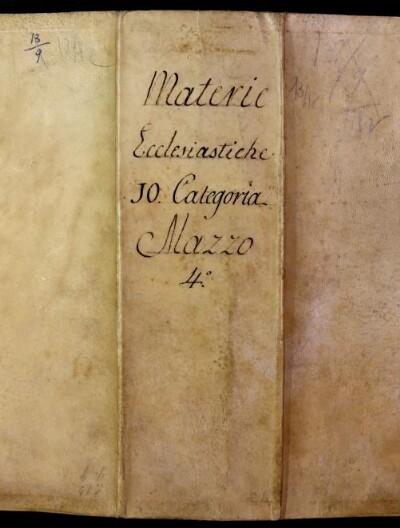 13
9
Materie
Ecclesiastiche
JO. Categoria
Mazzo
4.º